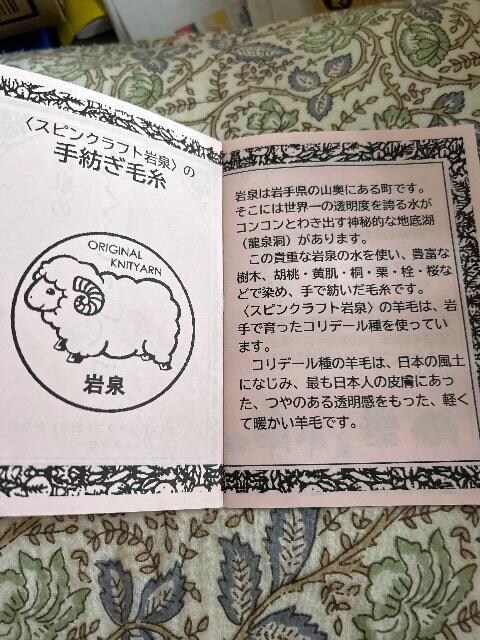 〈スピンクラフト岩泉〉の
手紡ぎ毛糸
ORIGINAL
KNITYARN
岩泉
岩泉は岩手県の山奥にある町です。
そこには世界一の透明度を誇る水が
コンコンとわき出す神秘的な地底湖
（龍泉洞）があります。
この貴重な岩泉の水を使い、豊富な
樹木、胡桃・黄肌・桐・栗・栓・桜な
どで染め、手で紡いだ毛糸です。
〈スピンクラフト岩泉〉の羊毛は、岩
手で育ったコリデール種を使ってい
ます。
コリデール種の羊毛は、日本の風土
になじみ、最も日本人の皮膚にあっ
た、つやのある透明感をもった、軽く
て暖かい羊毛です。